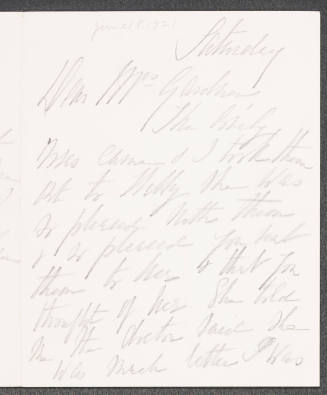 June 18, 1921
Saturday
Dear Mrs Gardner
The lovely
came & I took them
out to Nelly she was
so pleased with them
& so pleased you sent
them to her & that you
thought of her She told
me the doctor said she
was much better I was